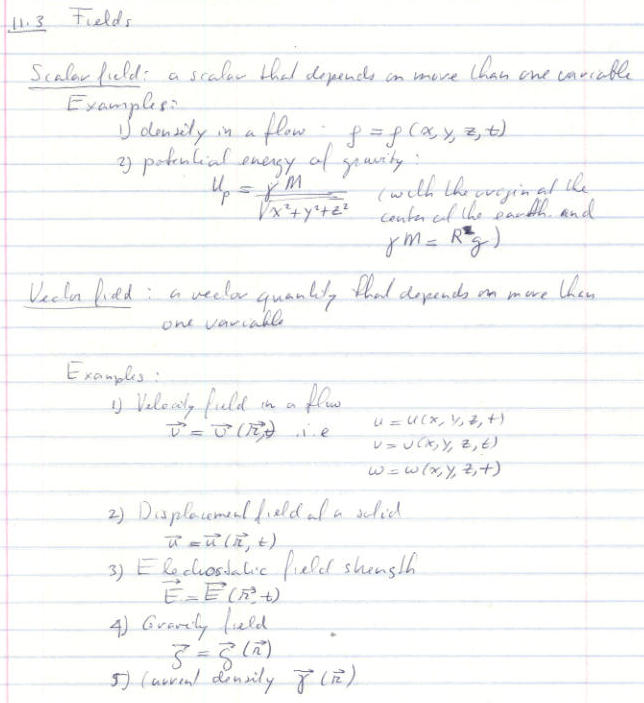 11.3 Fields
Scalar field: a scalar that depends on more than one variable
Examples:
1) density in a flow : ρ = ρ(x, y, z, t)
2) potential energy of gravity :
Up = γM / √x²+y²+z² (with the origin at the
center of the earth and
γM = R²g)
Vector field : a vector quantity that depends on more than
one variable
Examples :
1) Velocity field in a flow
v⃗ = v⃗(r⃗,t) i.e u = u(x, y, z, t)
v = v(x, y, z, t)
w = w(x, y, z, t)
2) Displacement field of a solid
u⃗ = u⃗(r⃗, t)
3) Electrostatic field strength
E⃗ = E⃗(r⃗, t)
4) Gravity field
g⃗ = g⃗(r⃗)
5) Current density j⃗(r⃗)